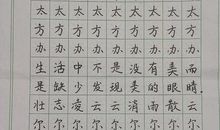 太太太太太太太太
方方方方方方方方
办办办办办办办办
生活中不是没有美,而
是缺少发现美的眼睛.
壮志凌云 云消雨散
尔尔尔尔尔尔尔尔